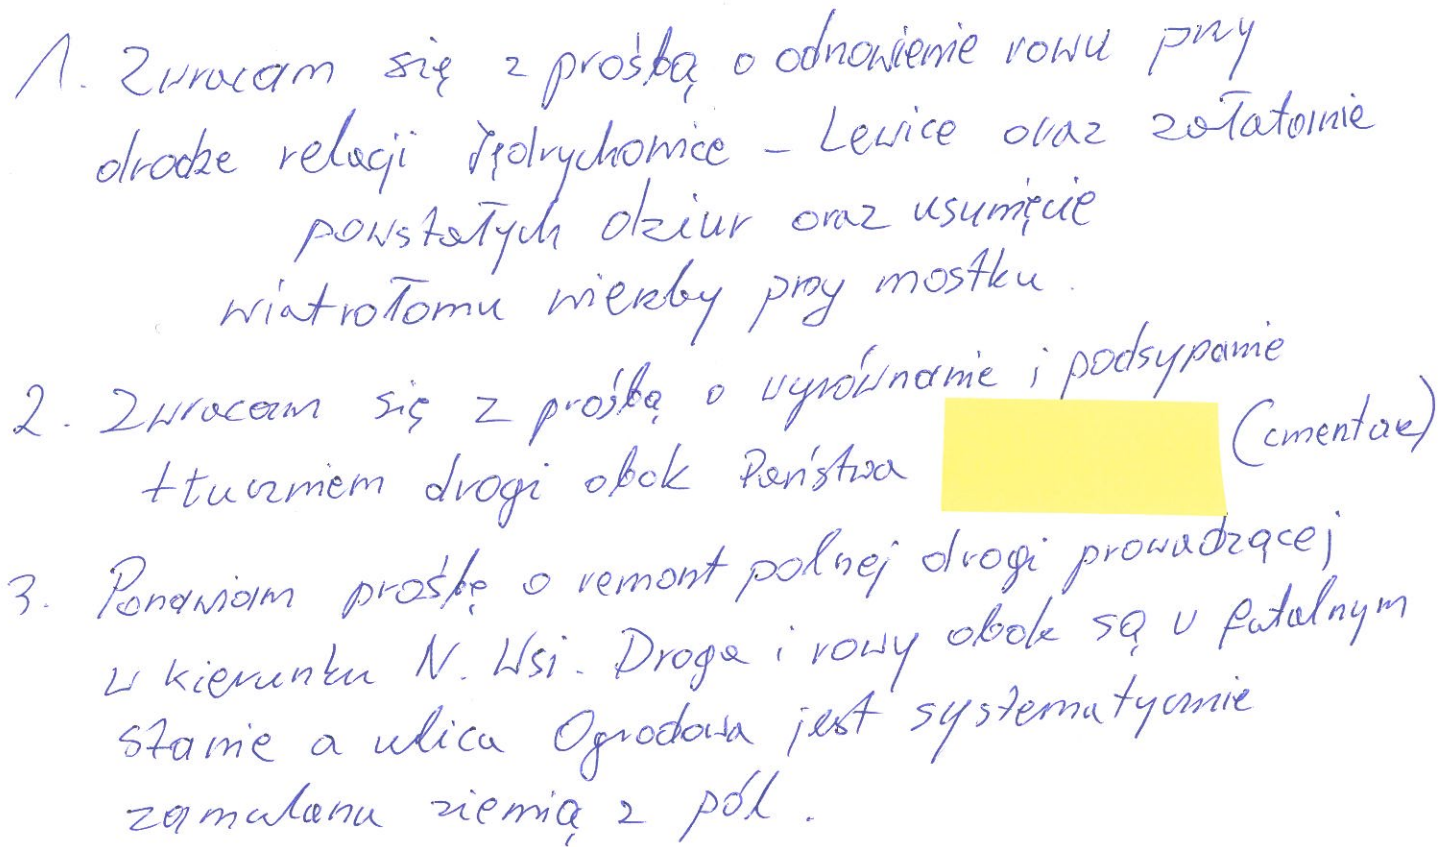 1. Zwracam się z prośbą o odnowienie rowu przy
drodze relacji Jędrychowice - Lewice oraz załatanie
powstałych dziur oraz usunięcie
wiatrołomu wierzby przy mostku.
2. Zwracam się z prośbą o wyrównanie i podsypanie
tłuczniem drogi obok Państwa (cmentarz)
3. Ponawiam prośbę o remont polnej drogi prowadzącej
w kierunku N. Wsi. Droga i rowy obok są w fatalnym
stanie a ulica Ogrodowa jest systematycznie
zamulana ziemią z pól.